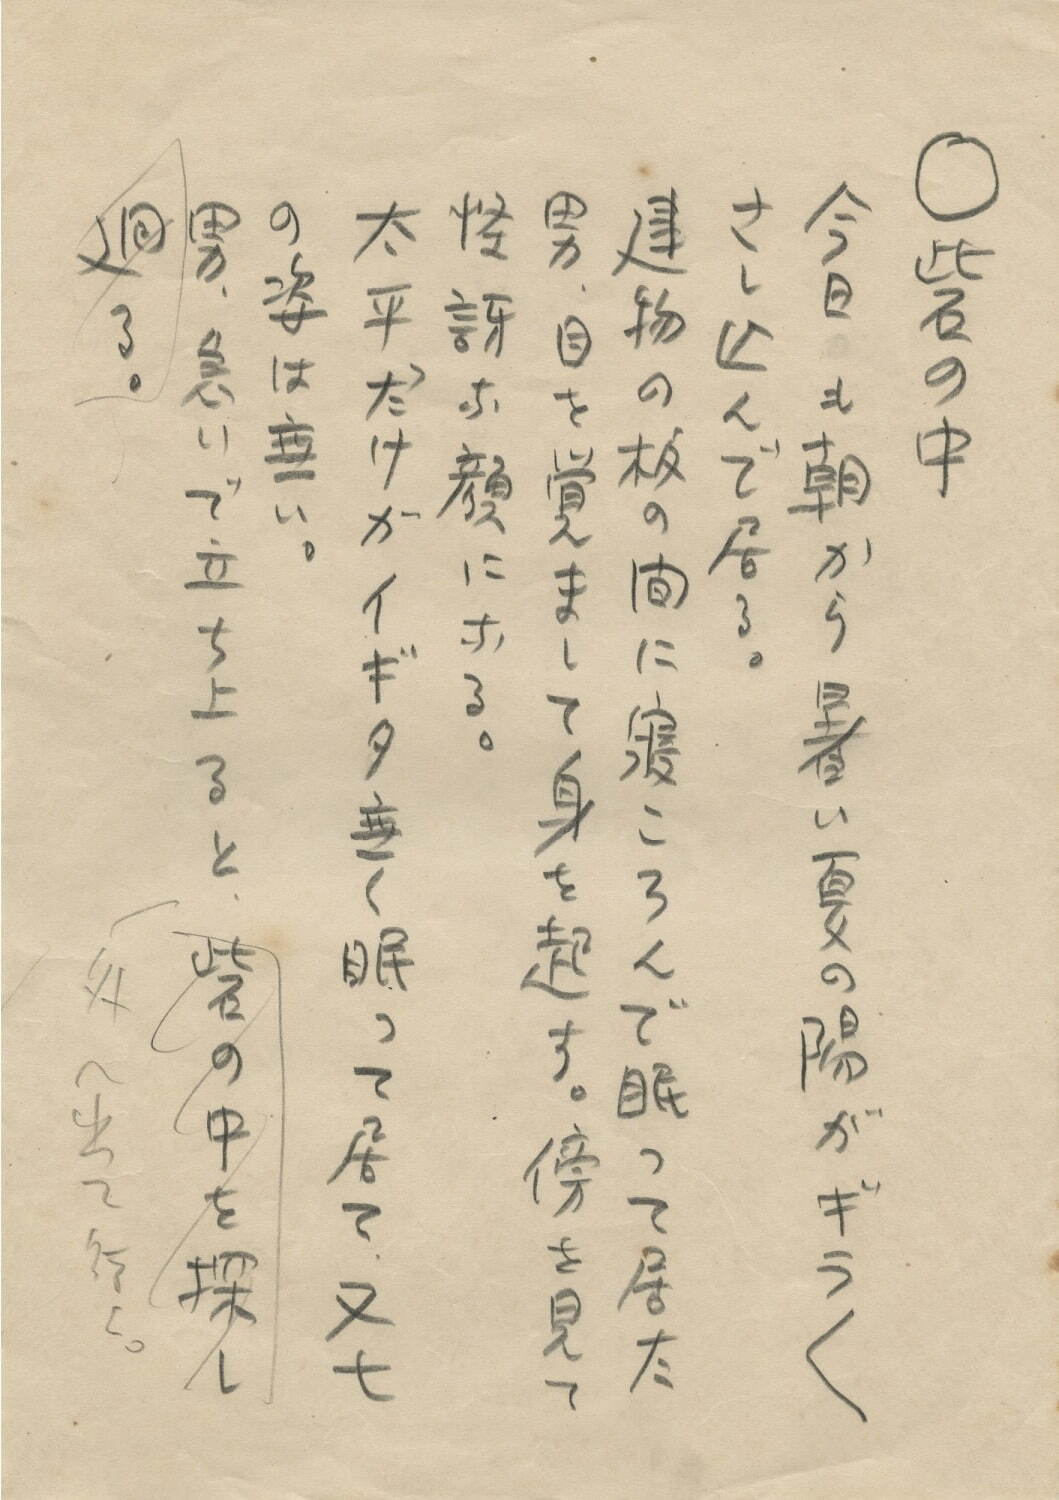 ○砦の中
今日も朝から暑い夏の陽がギラ〱
さし込んで居る。
建物の板の間に寝ころんで眠って居た
男、目を覚まして身を起す。傍を見て
怪訝な顔になる。
太平だけがイギタ無く眠って居て、又七
の姿は無い。
男、急いで立ち上ると、砦の中を探し
廻る。
外へ出て行く。